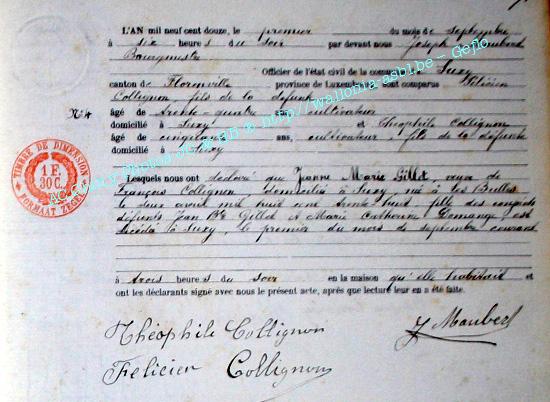 L'AN mil neuf cent douze, le premier du mois de septembre
à six heures du soir par devant nous Joseph
Bourgmestre
Officier de l'état civil de la commune de Suxy
canton de Florenville province de Luxembourg sont comparus Félicien
Collignon fils de la défunte
N° 4
âgé de trente-quatre ans, cultivateur
domicilié à Suxy et Théophile Collignon
âgé de cinquante ans, cultivateur fils de la défunte
domicilié à Suxy
Lesquels nous ont déclaré que Jeanne Marie Gillet veuve de
François Collignon domiciliée à Suxy née à les Bulles
le deux avril mil huit cent trente huit, fille des conjoints
défunts Jean Bte Gillet et Marie Catherine est
décédée à Suxy, le premier du mois de septembre courant
à trois heures du soir en la maison qu'elle habitait et
ont les déclarants signé avec nous le présent acte, après que lecture leur en a été faite.
J Maubert
Théophile Collignon
Félicien Collignon
TIMBRE DE DIMENSION
1 F.
30 C.
FORMAAT ZEGEL
Photos http://walloma-asbl.be - Geflo